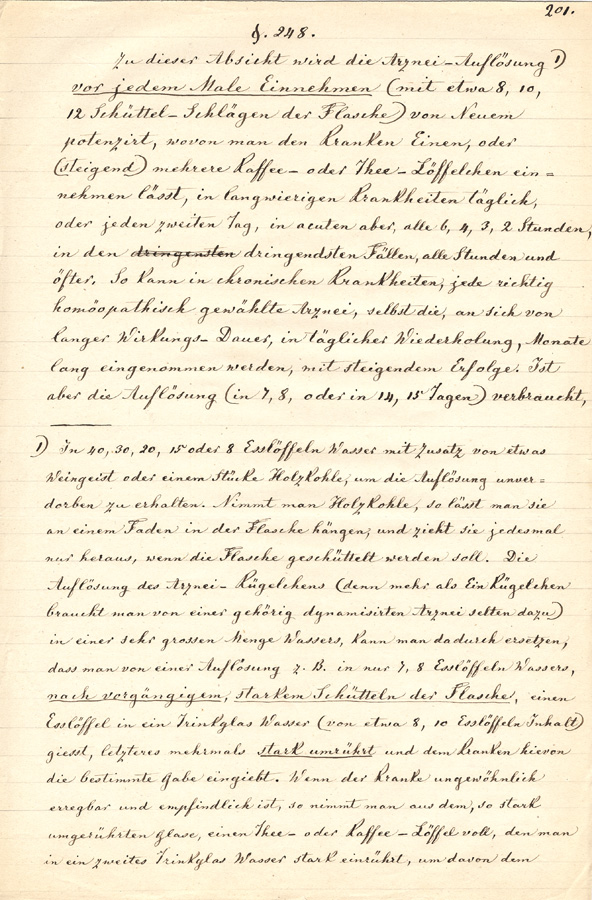 201.
§. 248.
Zu dieser Absicht wird die Arznei-Auflösung 1)
vor jedem Male Einnehmen (mit etwa 8, 10,
12 Schüttel-Schlägen der Flasche) von Neuem
potenzirt, wovon man den Kranken Einen, oder
(steigend) mehrere Kaffee- oder Thee-Löffelchen ein=
nehmen lässt, in langwierigen Krankheiten täglich,
oder jeden zweiten Tag, in acuten aber, alle 6, 4, 3, 2 Stunden,
in den dringensten dringendsten Fällen, alle Stunden und
öfter. So kann in chronischen Krankheiten, jede richtig
homöopathisch gewählte Arznei, selbst die, an sich von
langer Wirkungs-Dauer, in täglicher Wiederholung, Monate
lang eingenommen werden, mit steigendem Erfolge. Ist
aber die Auflösung (in 7, 8, oder in 14, 15 Tagen) verbraucht,
1) In 40, 30, 20, 15 oder 8 Esslöffeln Wasser mit Zusatz von etwas
Weingeist oder einem Stücke Holzkohle, um die Auflösung unver=
dorben zu erhalten. Nimmt man Holzkohle, so lässt man sie
an einem Faden in der Flasche hängen, und zieht sie jedesmal
nur heraus, wenn die Flasche geschüttelt werden soll. Die
Auflösung des Arznei-Kügelchens (denn mehr als Ein Kügelchen
braucht man von einer gehörig dynamisirten Arznei selten dazu)
in einer sehr grossen Menge Wassers, kann man dadurch ersetzen,
dass man von einer Auflösung z. B. in nur 7, 8 Esslöffeln Wassers,
nach vorgängigem, starkem Schütteln der Flasche, einen
Esslöffel in ein Trinkglas Wasser (von etwa 8, 10 Esslöffeln Inhalt)
giesst, letzteres mehrmals stark umrührt und dem Kranken hievon
die bestimmte Gabe eingiebt. Wenn der Kranke ungewöhnlich
erregbar und empfindlich ist, so nimmt man aus dem, so stark
umgerührten Glase, einen Thee- oder Kaffee-Löffel voll, den man
in ein zweites Trinkglas Wasser stark einrührt, um davon dem